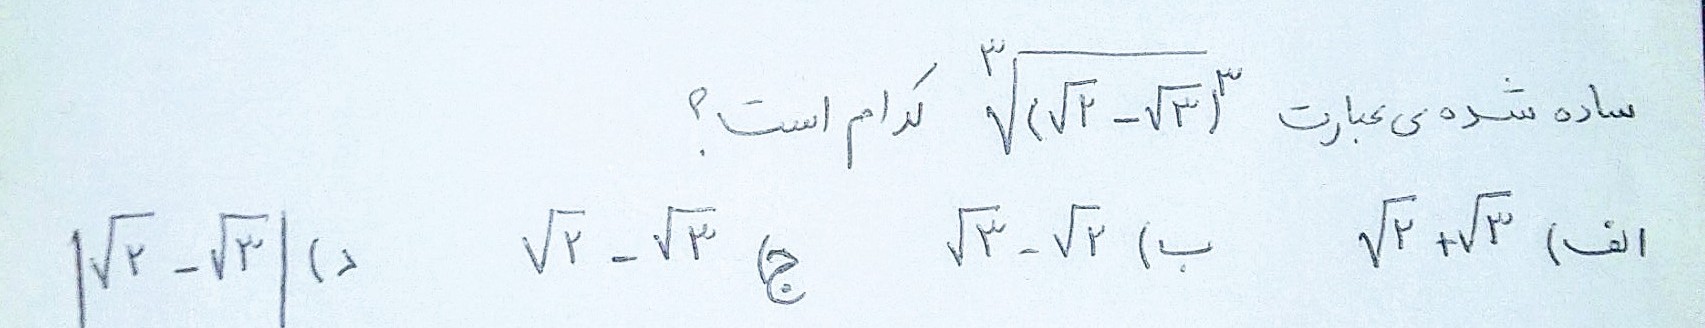 ساده شده‌ی عبارت ∛(√۲ − √۳)^۳ کدام است؟
الف) √۲ + √۳ ب) √۳ − √۲ ج) √۲ − √۳ د) |√۲ − √۳|